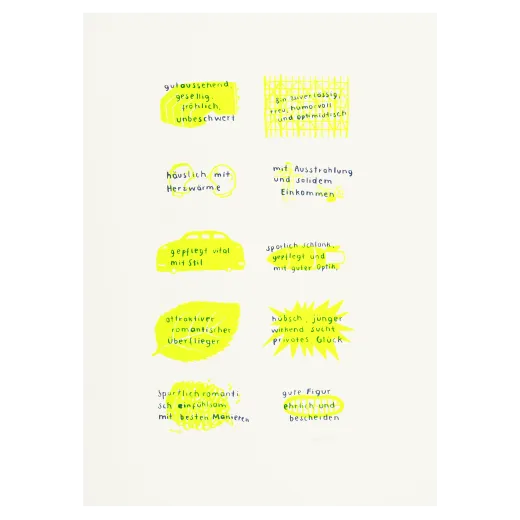 gutaussehend,
gesellig,
fröhlich,
unbeschwert
bin zuverlässig,
treu, humorvoll
und optimistisch
häuslich mit
Herzwärme
mit Ausstrahlung
und solidem
Einkommen
gepflegt vital
mit Stil
sportlich schlank,
gepflegt und
mit guter Optik,
attraktiver
romantischer
Überflieger
hübsch, junger
wirkend sucht
privates Glück
Sportlich romanti
sch einfühlsam
mit besten Manieren
gute Figur
ehrlich und
bescheiden